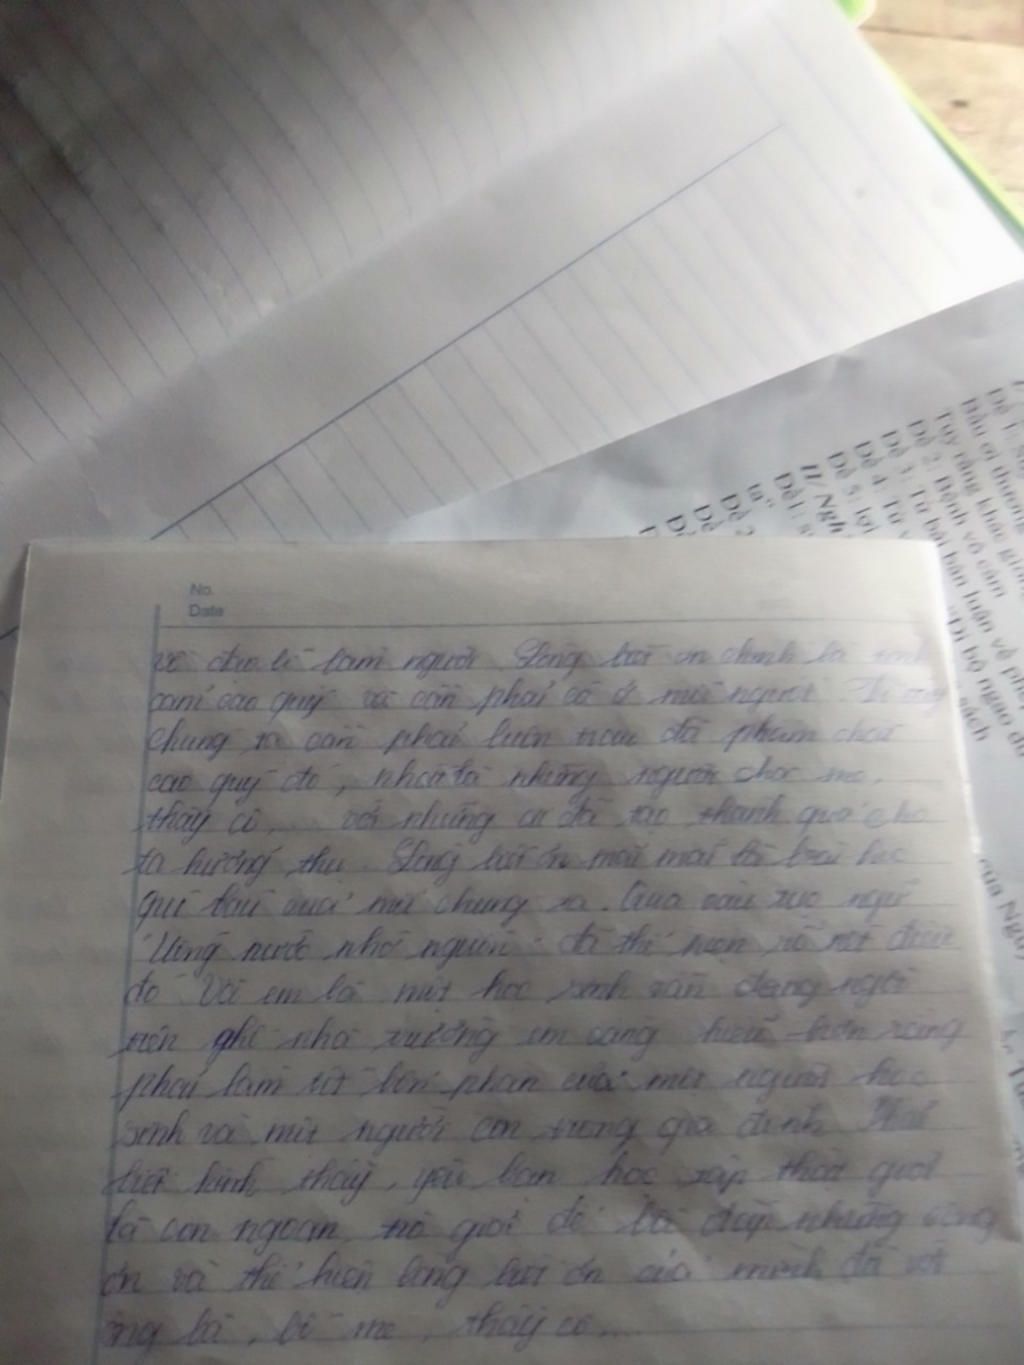 No.
Date
về đạo lí làm người. Lòng biết ơn chính là tình
cảm cao quý và cần phải có ở mỗi người. Vì vậy
chúng ta cần phải luôn trau dồi phẩm chất
cao quý đó, nhất là những người cha mẹ,
thầy cô,... với những ai đã tạo thành quả cho
ta hưởng thụ. Lòng biết ơn mãi mãi là bài học
quí báu của mỗi chúng ta. Qua câu tục ngữ
"Uống nước nhớ nguồn" đã thể hiện rõ nét điều
đó. Với em là một học sinh vẫn đang ngồi
trên ghế nhà trường em càng hiểu hơn rằng
phải làm tốt bổn phận của một người học
sinh và một người con trong gia đình. Phải
biết kính thầy, yêu bạn, học tập thật giỏi
là con ngoan, trò giỏi để bù đắp những công
ơn và thể hiện lòng biết ơn của mình đối với
ông bà, bố mẹ, thầy cô,...
Đề 1:
Bầu ơi thương
Tuy rằng khác giống
Đề 2: Bệnh vô cảm
Đề 3: Từ bài bàn luận về phép
Đề 4: Từ "Đi bộ ngao du"
Đề 5: sách
II/ Ngh
Đề 1:
ta"
Đề 2
của Nguy